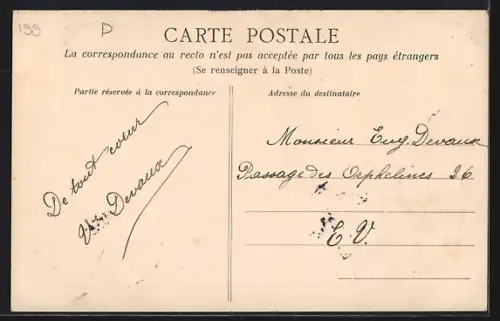 199 D
CARTE POSTALE
La correspondance au recto n'est pas acceptée par tous les pays étrangers
(Se renseigner à la Poste)
Partie réservée à la correspondance
Adresse du destinataire
De tout coeur
Devaux
Monsieur Eug. Devaux
Passage des Orphelines 26
E. V.